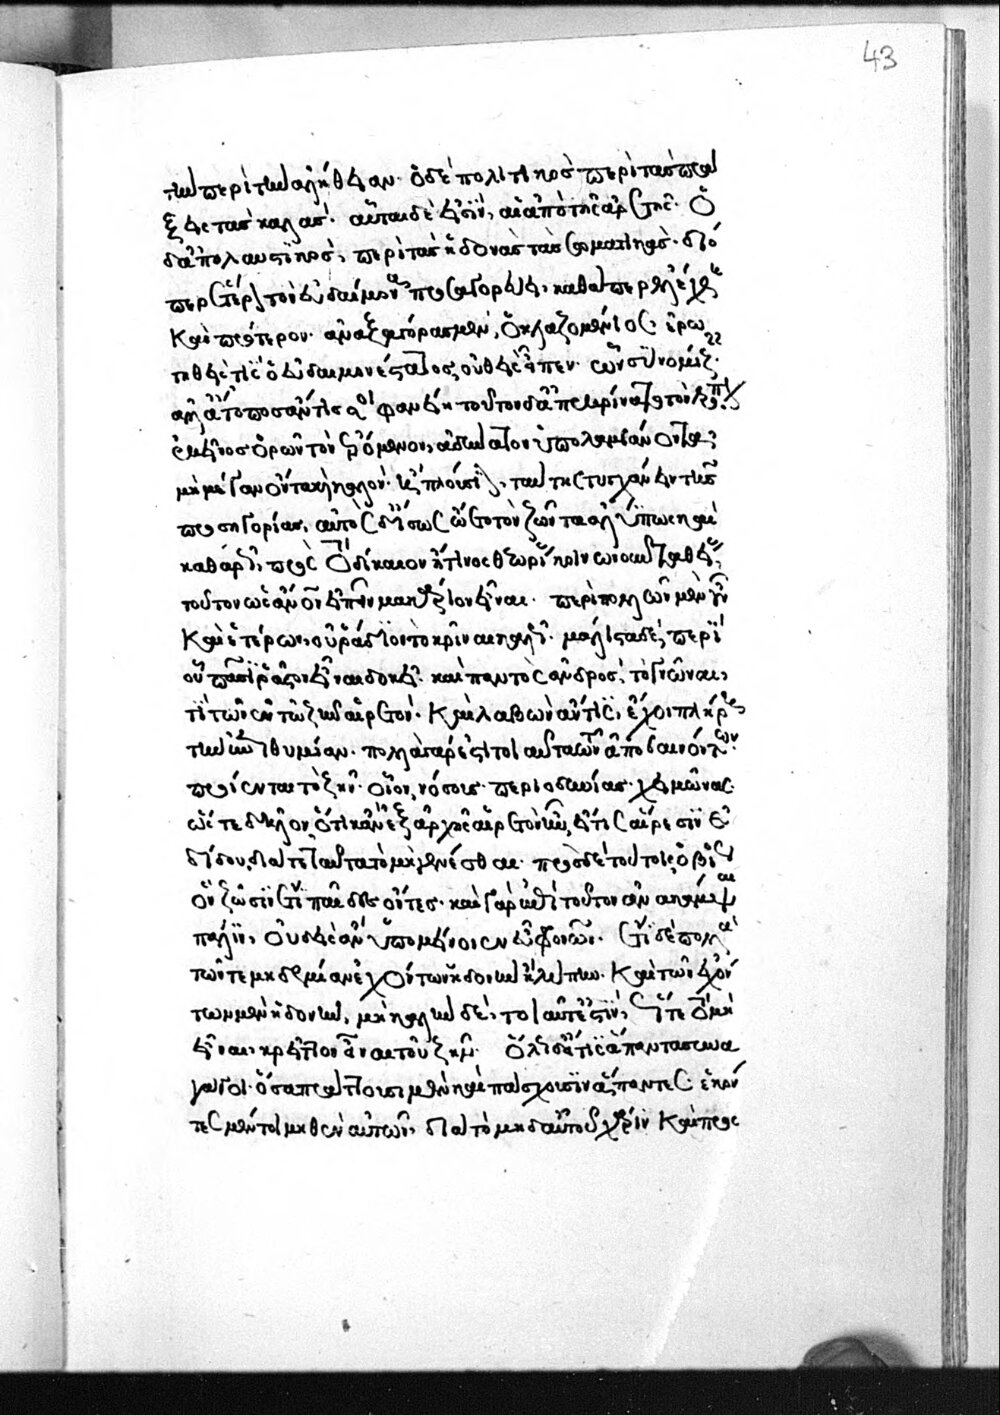 τὴν περὶ τὴν ἀλήθειαν· ὁ δὲ πολιτικὸς περὶ τὰς πρά
ξεις τὰς καλάς· αὗται δέ εἰσιν, αἱ ἀπὸ τῆς ἀρετῆς· ὁ
δ' ἀπολαυστικὸς, περὶ τὰς ἡδονὰς τὰς σωματικάς· διό
περ ἕτερος τὸν εὐδαίμονα προσαγορεύει, καθάπερ ἐλέχθη
καὶ πρότερον· ἀναξαγόρας μὲν, ὁ κλαζομένιος ἐρω
τηθεὶς τίς ὁ εὐδαιμονέστατος, οὐθεὶς εἶπεν· ὧν σὺ νομίζεις·
ἀλλ' ἄτοπος ἄν τίς σοι φανείη τοῦτον δ' ἀπεκρίνατο τὸν τρόπον
ἐκεῖνος ὁρῶν τὸν ἐρόμενον, ἀδύνατον ὑπολαμβάνοντα,
μὴ μέγαν ὄντα καὶ καλὸν· ἢ πλούσιον, ταύτης τυγχάνειν τῆς
προσηγορίας, αὐτὸς δ' ἴσως ᾤετο τὸν ζῶντα ἀλύπως καὶ
καθαρῶς, πρὸς τὸ δίκαιον ἤ τινος θεωρίας κοινωνοῦντα θείας,
τοῦτον ὡς ἄνθρωπον εἰπεῖν μακάριον εἶναι. περὶ πολλῶν μὲν οὖν
καὶ ἑτέρων, οὐ ῥάδιον τὸ κρῖναι καλῶς· μάλιστα δὲ, περὶ
οὗ πᾶσι ῥᾶστον εἶναι δοκεῖ· καὶ παντὸς ἀνδρὸς, τὸ γνῶναι,
τί τῶν ἐν τῷ ζῆν αἱρετόν. καὶ λαβὼν ἄν τις, ἔχοι πλήρη
τὴν ἐπιθυμίαν· πολλὰ γάρ ἐστι τοιαῦτα τῶν ἀποβαινόντων.
προίενται τὸ ζῆν· οἷον, νόσους· περιοδυνίας· χειμῶνας·
ὥστε δῆλον, ὅτι κἂν ἐξ ἀρχῆς αἱρετὸν ἦν, εἴ τις αἵρεσιν ἐ
δίδου, διά γε ταῦτα τὸ μὴ γενέσθαι. πρὸς δὲ τούτοις, ὁ βίος
ὃν ζῶσιν ἔτι παῖδες ὄντες· καὶ γὰρ ἐπὶ τοῦτον ἀνακάμψαι
πάλιν, οὐδεὶς ἂν ὑπομείνοιεν εὖ φρονῶν. ἔτι δὲ πολλὰ
τῶν τε μηδεμίαν ἐχόντων ἡδονὴν ἢ λύπην. καὶ τῶν ἐχόν
των μὲν ἡδονὴν, μὴ καλὴν δέ, τοιαῦτ' ἐστὶν, ὥστε τὸ μὴ
εἶναι, κρεῖττον εἶναι τοῦ ζῆν. ὅλως δ' εἴ τις ἅπαντα συνα
γάγοι· ὅσα πράττουσι μὲν καὶ πάσχουσιν ἅπαντες ἑκόν
τες μέντοι μηθὲν αὐτῶν, διὰ τὸ μηδ' αὐτοῦ χάριν καὶ προς